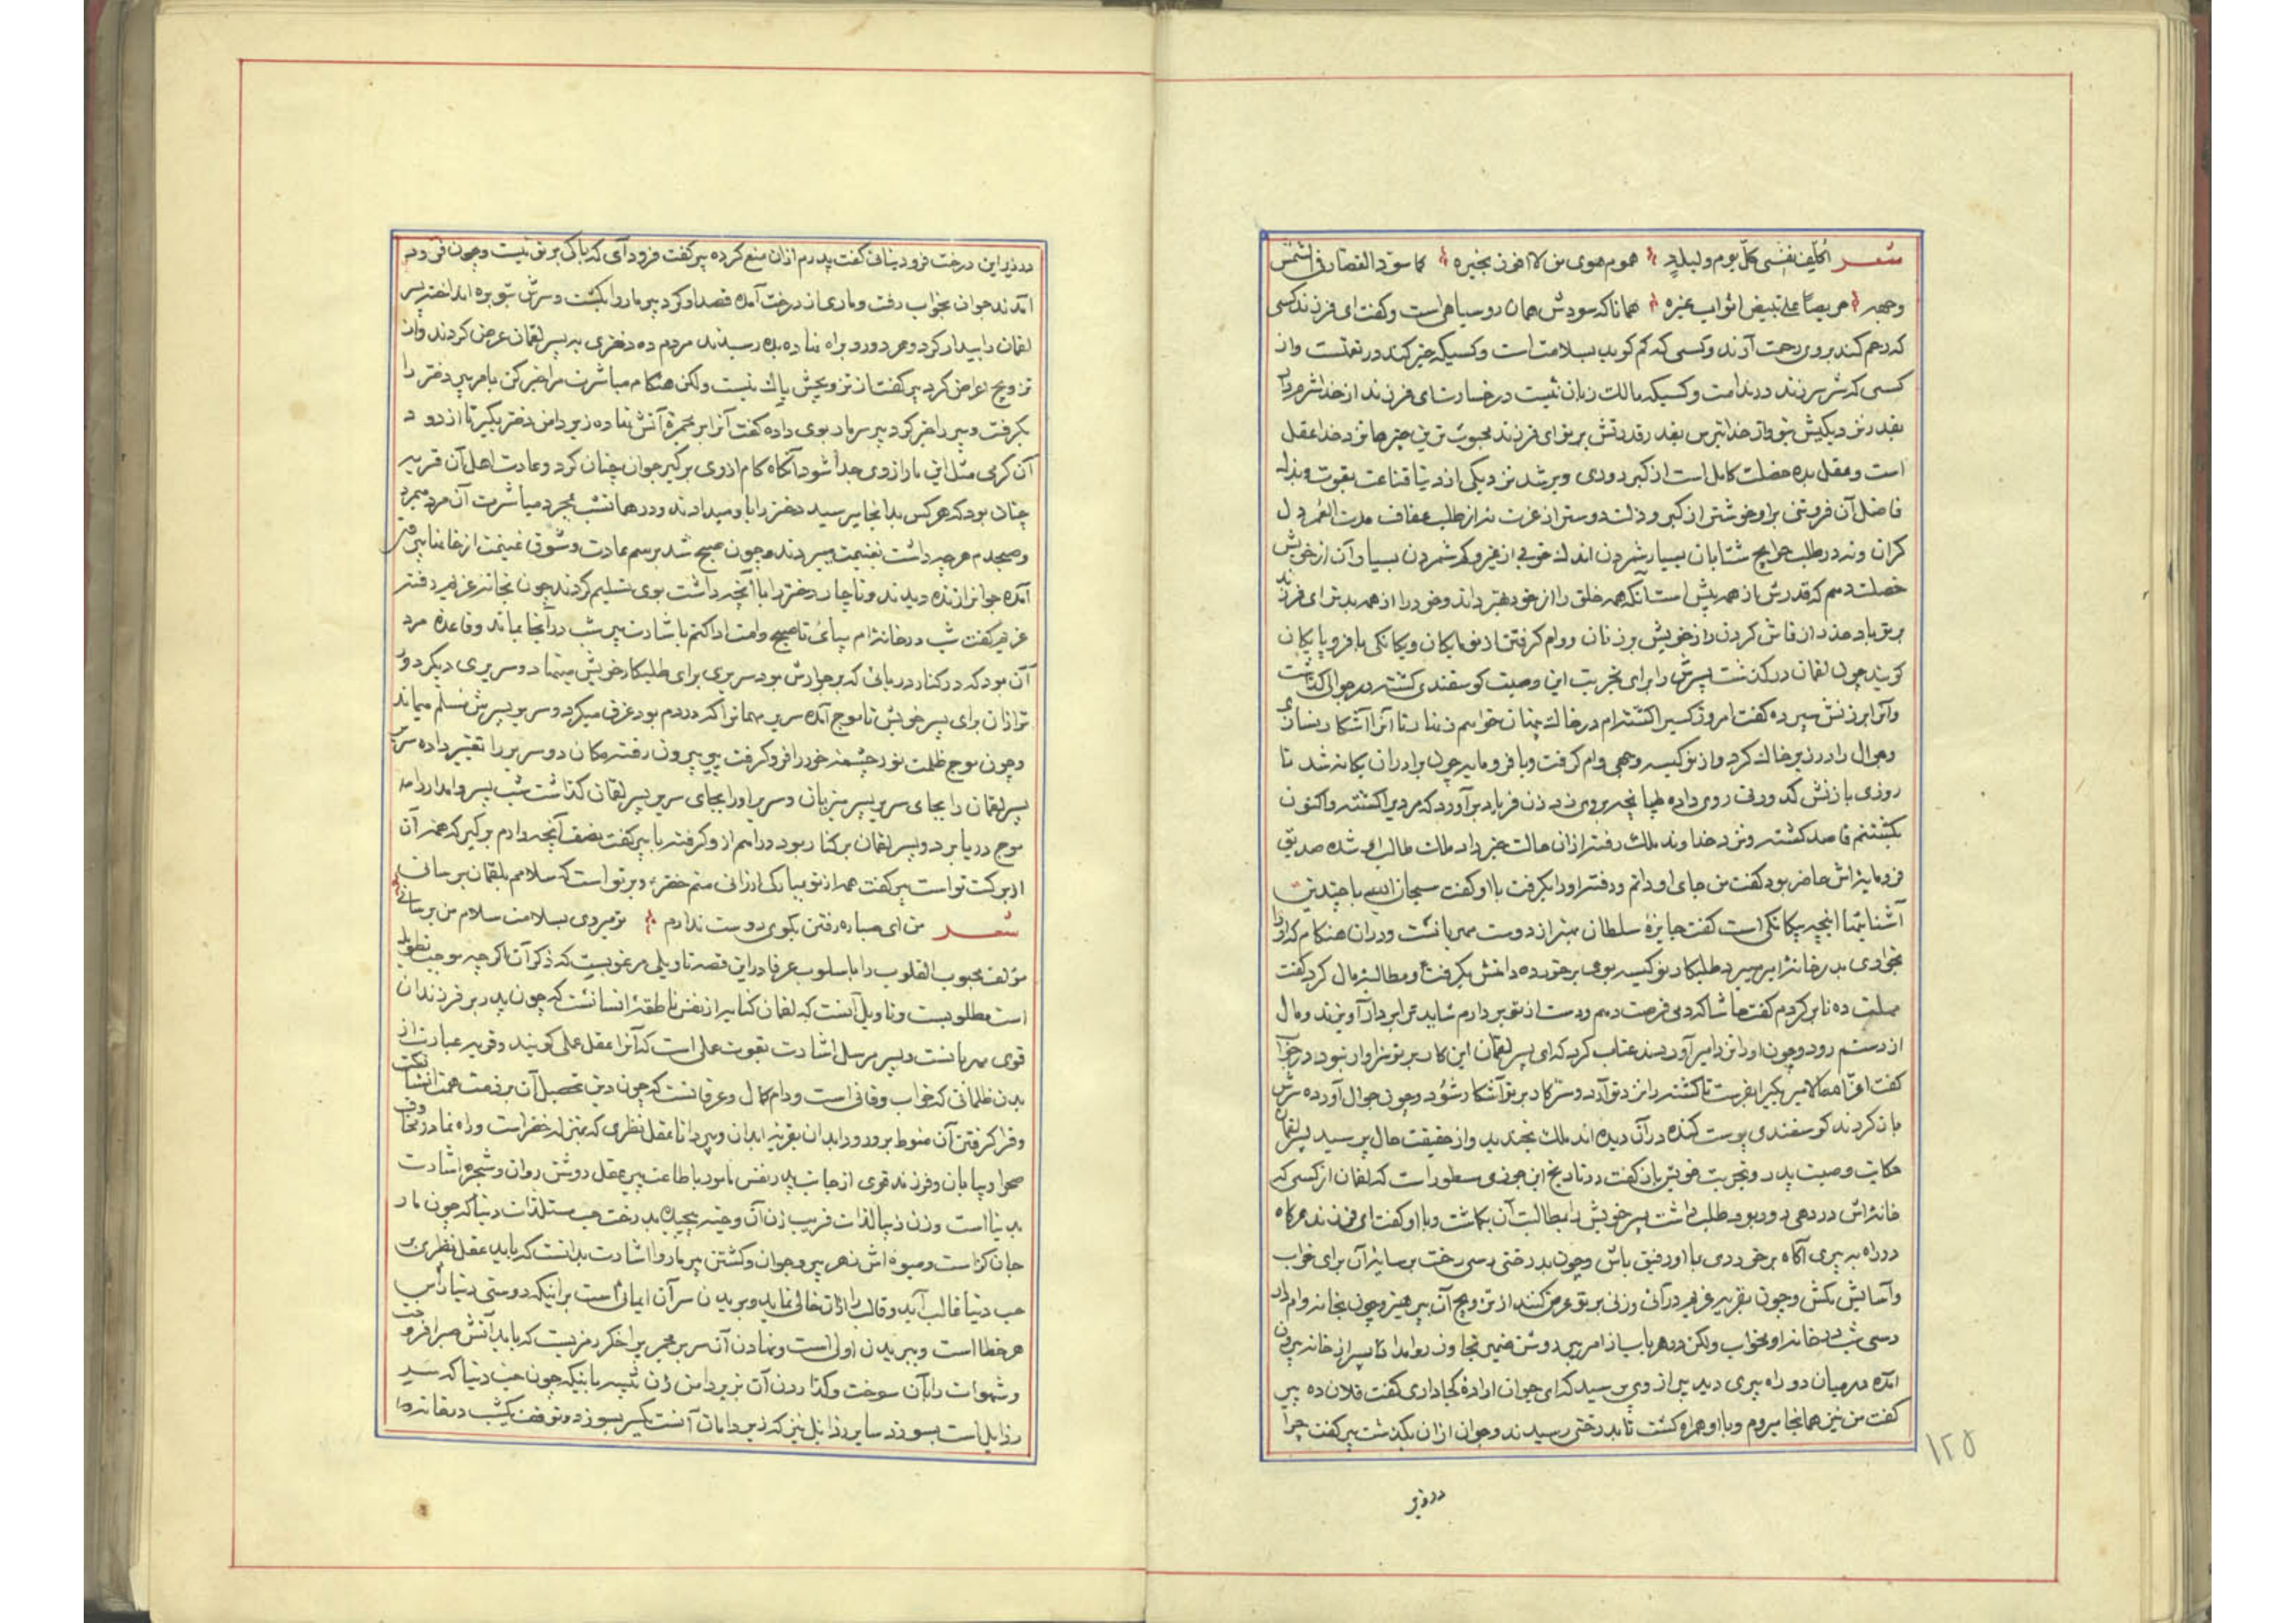 شعر اکلف نفسی کل یوم ولیلة هموم هوی من لا افوز بخیره کما سوّد القصار فی الشمس
وجهه حریصا علی تبییض اثواب غیره همانا که سودش همان روسیاهی است وگفت ای فرزند کسی
که رحم کند بروی رحمت آرند وکسی که کم کوید بسلامت است وکسیکه خیر کند در نعتست واز
کسی که شر سر زند در ندامت وکسیکه مالك زبان نیست در خسارت ای فرزند از خدا شرم دار
بقدر نزدیکیش بتو واز خدا بترس بقدر قدرتش بر تو ای فرزند محبوب ترین چیزها نزد خدا عقل
است وعقل بده خصلت کامل است از کبر دوری وبرشد نزدیکی از دنیا قناعت بقوت وبذل
فاضل آن فروتنی براو خوشتر از کبر وذلت دوستر از عزت نه از طلب عفاف مدت العمر دل
کران ونه در طلب حوایج شتابان بسیار شمردن اندك خوبی از غیر وکم شمردن بسیار آن از خویش
خصلت دهم که قدرش از همه بیش است آنکه همه خلق را از خود بهتر داند وخود را از همه بدتر ای فرزند
بر تو باد حذر از فاش کردن راز خویش بر زنان ووام کرفتن از نوکیسکان ویکانکی با فرومایکان
کویند چون لقمان درکذشت پسرش را برای تجربت این وصیت کوسفندی کشته در جوالی کذاشت
وآنرا بزنش سپرده کفت امروز کسیرا کشته‌ام در خاك پنهان خواهم نمود تا آنرا آشکار نسازی
وجوال را در زیر خاك کرد واز نوکیسه وجهی وام کرفت وبا فرومایه چون برادران یکانه شد تا
روزی با زنش کدورتی روی داده طپانچه بروی زد زن فریاد برآورد که مردیرا کشته واکنون
بکشتنم قاصد کشته ونزد خداوند ملك رفته از آن حالت خبر داد ملك طالب او شده صدیق
فرومایه اش حاضر بود کفت من جای او دانم ورفته اورا بکرفت با او کفت سبحان الله با چندین
آشنائیها اینچه بیکانکی است کفت جایزه سلطان بهتر از دوست مهربانست ودر آن هنکام که اورا
بخواری بدر خانه امیر میبرد طلبکار نوکیسه بوی برخورده دامنش بکرفت ومطالبه مال کرد کفت
مهلت ده تا برکردم کفت حاشا که دمی فرصت دهم ودست از تو بردارم شاید ترا بر دار آویزند ومال
از دستم رود وچون اورا نزد امیر آوردند عتاب کرد که ای پسر لقمان این کار بر تو سزاوار نبود در جواب
کفت اعز الله الامیر بفرست تا کشته را نزد تو آرند وسر کار بر تو آشکار شود وچون جوال آورده سرش
باز کردند کوسفندی پوست کنده در آن دیده اند ملك بخندید واز حقیقت حال پرسید پسر لقمان
حکایت وصیت پدر وتجربت خویش باز کفت در تاریخ ابن جوزی مسطور است که لقمان از کسی که
خانه اش در دهی دور بود طلب داشت پسر خویش را بمطالبت آن بکماشت وبا او کفت ای فرزند هرکاه
در راه به پیری آکاه برخوردی با او رفیق باش وچون بدرختی رسی رخت بر سایه آن برای خواب
وآسایش مکش وچون بقریه غریم درآئی وزنی بر تو عرض کنند از تزویج آن بپرهیز وچون بخانه وام دار
رسی شب در خانه او مخواب ولکن در هر باب از امر پیر روشن ضمیر تجاوز روا مدار تا پسر از خانه بیرون
آمده در میان دو راه پیری دید پیر از وی پرسید که ای جوان اراده کجا داری کفت فلان ده پیر
کفت من نیز همانجا میروم وبا او همراه کشت تا بدرختی رسیدند وجوان از آن بکذشت پیر کفت چرا
در زیر
۱۲۵
در زیر این درخت فرود نیائی کفت پدرم از آن منع کرده پیر کفت فرود آی که باکی بر تو نیست وچون فرود
آمدند جوان بخواب رفت وماری از درخت آمده قصد او کرد پیر مار را بکشت وسرش بتوبره انداخته پسر
لقمان را بیدار کرد وهر دو رو براه نهاده بده رسیدند مردم ده دختری به پسر لقمان عرض کردند واز
تزویج اعراض کرد پیر کفت از تزویجش باك نیست ولکن هنکام مباشرت مرا خبر کن بامر پیر دختر را
بکرفت وپیر را خبر کرد پیر سر مار بوی داده کفت آنرا بر مجمره آتش نهاده زیر دامن دختر بکیر تا از دود
آن کرمی مثل این مار از وی جدا شود آنکاه کام از وی برکیر جوان چنان کرد وعادت اهل آن قریه
چنان بود که هرکس بدانجا میرسید دختر را باو میدادند ودر همانشب بمجرد مباشرت آن مرد میمرد
وصبحدم هر چه داشت بغنیمت میبردند وچون صبح شد برسم عادت وشوق غنیمت از خانها بیرون
آمده جوانرا زنده دیدند وناچار دختر را با آنچه داشت بوی تسلیم کردند چون بخانه غریم رفتند
غریم کفت شب در خانه‌ام بپای تا صبح وامت ادا کنم باشارت پیر شب در آنجا بماند وقاعده مرد
آن بود که در کنار دریائی که بر جوارش بود سریری برای طلبکار خویش مینهاد وسریری دیکر دور
تر از آن برای پسر خویش تا موج آمده سریر مهمانرا که در دم بود غرق میکرد وسریر پسرش بسلم میماند
وچون موج ظلمت نور چشمه خور را فرو کرفت پیر بیرون رفته مکان دو سریر را تغییر داده سریر
پسر لقمان را بجای سریر پسر میزبان وسریر اورا بجای سریر پسر لقمان کذاشت شب پسر وامدار را مد
موج دریا برد وپسر لقمان برکنار بود دراهم از او کرفته با پیر کفت نصف آنچه دارم برکیر که همه آن
از برکت تو است پیر کفت همه از تو مبارك ارزانی منم خضر وبر تو است که سلامم بلقمان برسانی
شعر من ای صبا ره رفتن بکوی دوست ندارم تو میروی بسلامت سلام من برسانی
مؤلف محبوب القلوب را باسلوب عرفا در این قصه تاویلی مرغوبست که ذکر آن اکرچه موجب تطویل
است مطلوبست وتاویل آنست که لقمان کنایه از نفس ناطقه انسانست که چون پدر بر فرزندان
قوی مهربانست وپسر مرسل اشارت بقوت عملی است که آنرا عقل عملی کویند وقریه عبارت از
بدن ظلمانی که خراب وفانی است ووام کمال وعرفانست که چون دین تحصیل آن بر ذمت همت انشا
وفرا کرفتن آن منوط بورود ابدان بقریه ابدان وپیر دانا عقل نظری که بمنزله خضر است وراه نما در
صحرا وبیابان وفرزند قوی از جانب پدر نفس مامور باطاعت پیر عقل روشن روان وشجره اشارت
بدنیا است وزن زیبا لذات فریب زن آن وحیه پیچیده بدرخت حب مستلذات دنیا که چون مار
جان کزا است ومیوه اش زهر پیر وجوان وکشتن پیر مار را اشارت بدانست که باید عقل نظری بر
حب دنیا غالب آید وقالب را از آن خالی نماید وبریدن سر آن ایمائست بر اینکه دوستی دنیا راس
هر خطا است وببریدن اولی است ونهادن آن سر بر مجمر پر اخکر رمزیست که باید آتش صبر افروخت
وشهوات را بآن سوخت وکذاردن آن بزیر دامن زن تنبیه باینکه چون حب دنیا که سر
رذایل است بسوزد سایر رذایل نیز که زیر دامان آنست یکسر بسوزد وتوقف یکشب در خانه وام